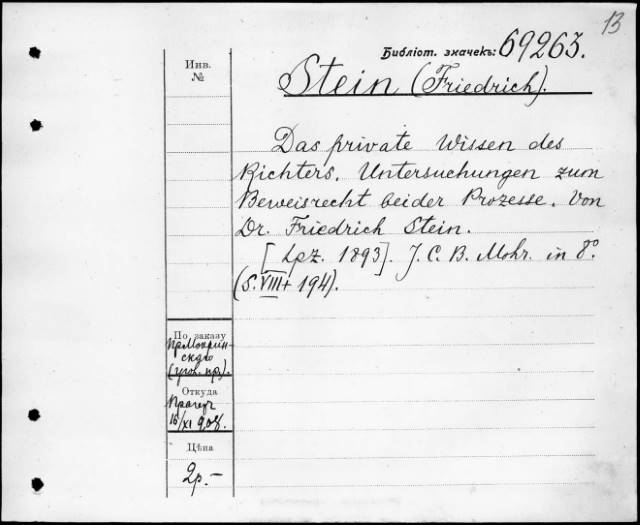 13
Библіот. значекъ: 69263.
Инв.
№
Stein (Friedrich).
Das private Wissen des
Richters. Untersuchungen zum
Beweisrecht beider Prozesse. Von
Dr. Friedrich Stein.
[Lpz. 1893]. J. C. B. Mohr. in 8º
(S. VIII + 194).
По заказу
пр. Мокрин-
скаго
(угол. пр.).
Откуда
15/XI 908.
Цѣна
2р.-